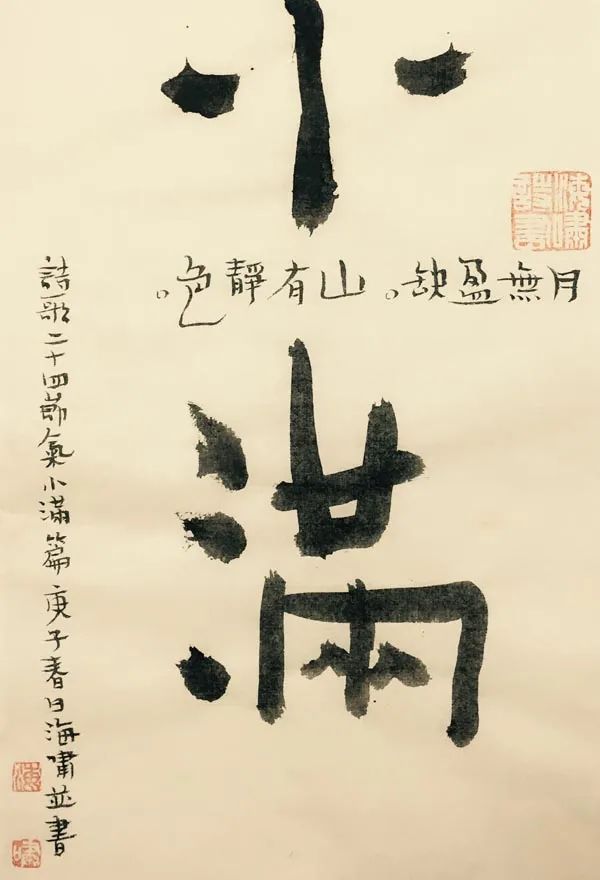 小滿
月無盈缺。山有靜色。
詩歌二十四節氣小滿篇庚子春日海嘯並書
海
嘯